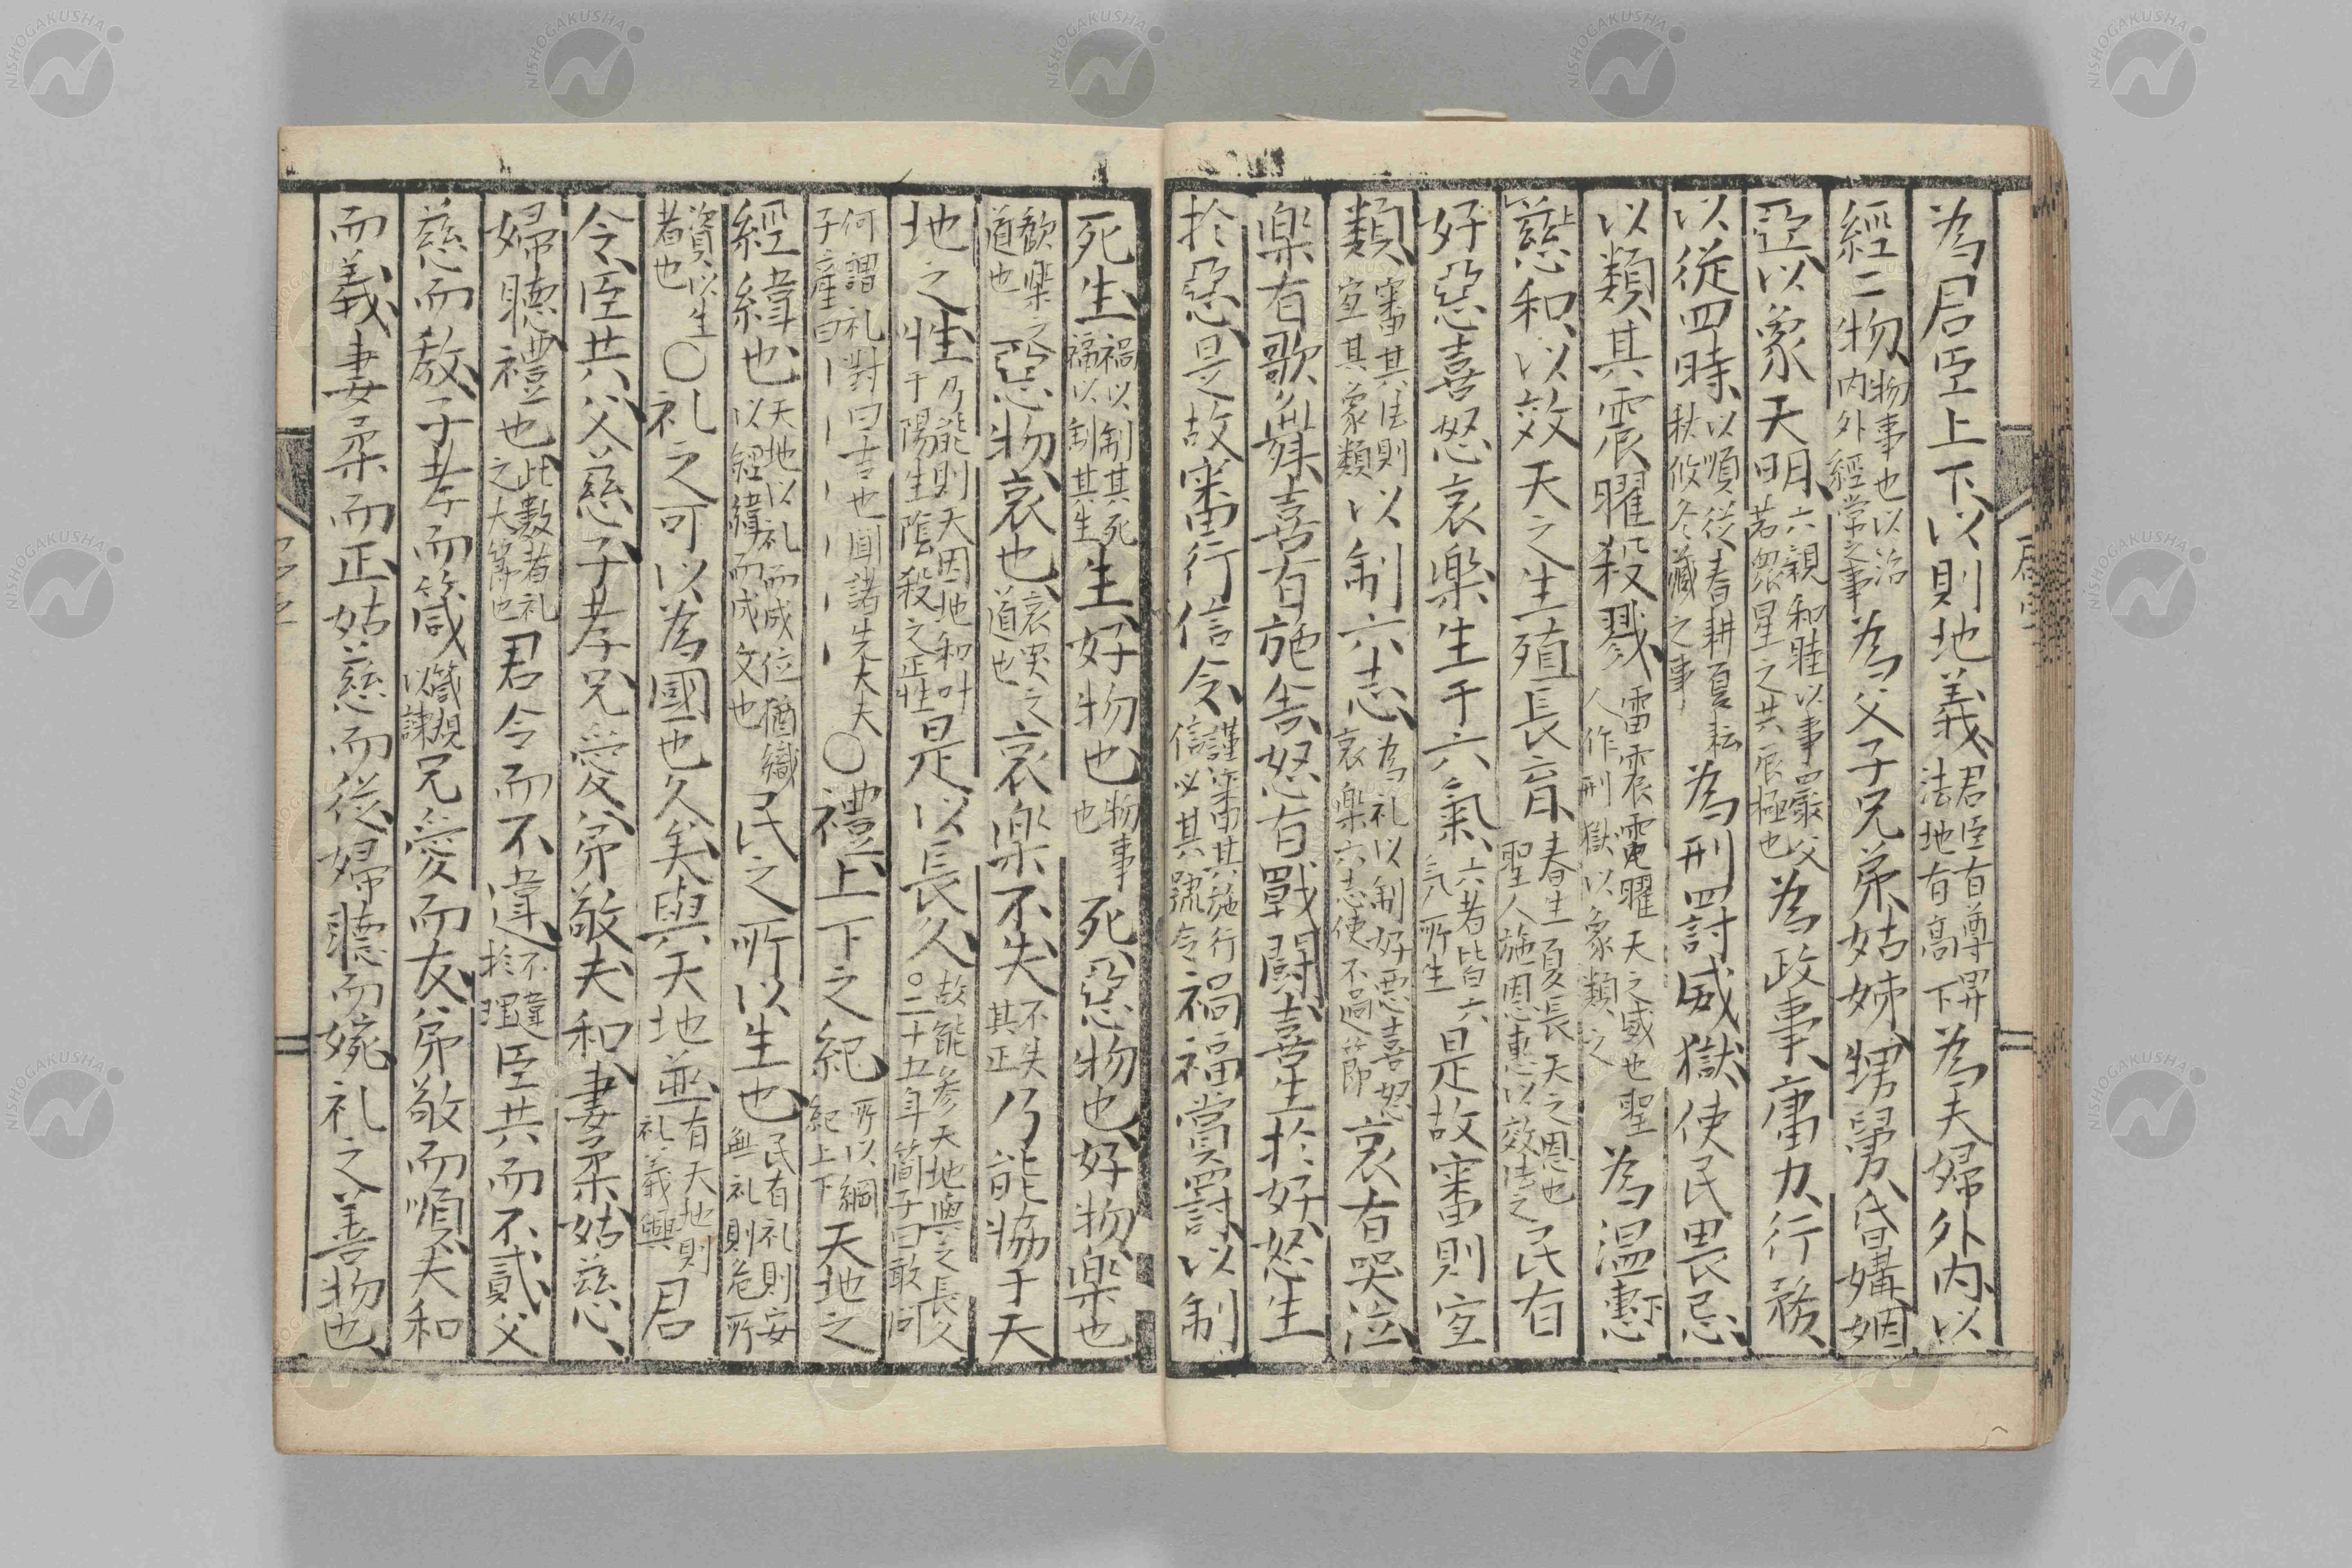 為君臣上下以則地義君臣有尊卑法地有高下為夫婦外内以
經二物物事也以治内外經常之事為父子兄弟姑姊甥舅昏媾姻
亞以象天明六親和睦以事嚴父若衆星之共辰極也為政事庸力行務
以從四時以順從春耕夏耘秋收冬藏之事為刑罰威獄使民畏忌
以類其震曜殺戮雷震電曜天之威也聖人作刑獄以象類之為温惠下
慈上和以效天之生殖長育春生夏長天之恩也聖人施恩惠以效法之民有
好惡喜怒哀樂生于六氣六者皆六氣所生是故審則宜
類審其法則宜其象類以制六志為礼以制好悪喜怒哀樂六志使不過節哀有哭泣
樂有歌舞喜有施舍怒有戰鬪喜生於好怒生
於惡是故審行信令謹審其施行信必其號令禍福賞罰以制
死生禍以制其死福以制其生生好物也物事也死惡物也好物樂也
歡樂之道也惡物哀也哀哭之道也哀樂不失不失其正乃能協于天
地之性乃能則天因地和叶于陽生陰殺之正性是以長久故能參天地與之長久○二十五年簡子曰敢問
何謂礼對曰吉也聞諸先大夫子産曰○禮上下之紀所以綱紀上下天地之
經緯也天地以礼而成位猶織以經緯而成文也民之所以生也民有礼則安無礼則危所
資以生者也○礼之可以為國也久矣與天地並有天地則礼義興君
令臣共父慈子孝兄愛弟敬夫和妻柔姑慈
婦聽禮也此數者礼之大節也君令而不違不違於理臣共而不貳父
慈而教子孝而箴箴規以諫兄愛而友弟敬而順夫和
而義妻柔而正姑慈而從婦聽而婉礼之善物也
NISHOGAKUSHA